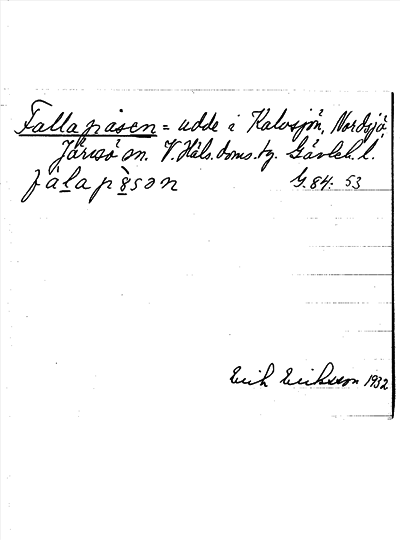 Fallapåsen = udde i Kalvsjön, Nordsjö,
Järvsö sn. V. Häls. doms. tg. Gävleb. l.
fàlapàsən G. 84: 53
Erik Eriksson 1932